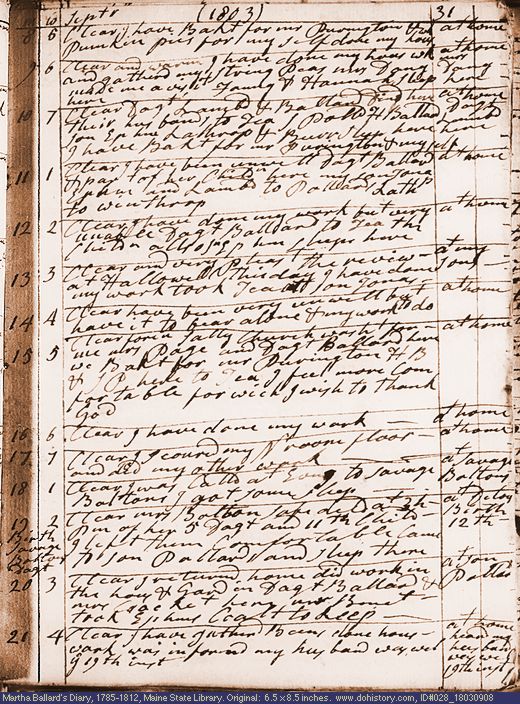 10 Septr (1803) 31
8 5 Clear, I have Bakt for mr Purington & at home
Pumkin pies for my self. done my hous
9 6 Clear and warm. I have done my hous wk at home
and gatherd my string Beans. mrs
made me a visit. Hannah
here
10 7 Clear. Dagt Lambd & Ballard and at home
their husbands to Tea, Dolly & Dagt
son Ephm Lathrop & Lambd
I have Bakt for mr Purington & myself here
11 1 Clear. I have been unwell. Dagt Ballard at home
& part of her Childn here. my son Jona
Ephm and Lambd to Pollard Lath
to winthrop
12 2 Clear. I have done my work but very at home
unwell. Dagt Ballard to Tea the
Childn allso. Ephm sleeps here
13 3 Clear and very pleast. the review at my
at Hallowell this day. I have done sons
my work. took Tea att son Jonas
14 4 Clear. have been very unwell but at home
have it to bear alone & my work to do
15 5 Clear fore. Sally Church washt for at home
me. mrs Page and Dagt Ballard here
we Bakt for mr Purington. H B
& J P here to Tea. I feel more Com
fortable for which I wish to thank
god
16 6 Clear. I have done my work at home
17 7 Clear. I scourd my room floor at home
and did my other work
18 1 Clear. I was Calld at Evng to Savage at Savage
Boltons. I got some sleep Boltons
19 2 Clear. mrs Bolton safe dld at 3h at Ditoes
Birth Pm of her 5th Dagt and 11th Child Birth
Savage I left them Comfortable. Came 12th
Boltons to son Pollards and sleep there
Dagt
20 3 Clear. I returnd home. did work in at son
the hous & Gardin. Dagt Ballard & Pollards
mrs
took Ephms Coat to keep
21 4 Clear. I have gathird Beens, done hous at home
work. was informd my husband was well hear my
ye 19th inst husband
was well
19th inst
Martha Ballard's Diary, 1785-1812, Maine State Library. Original: 6.5 x 8.5 inches. www.dohistory.com, ID#028_18030908